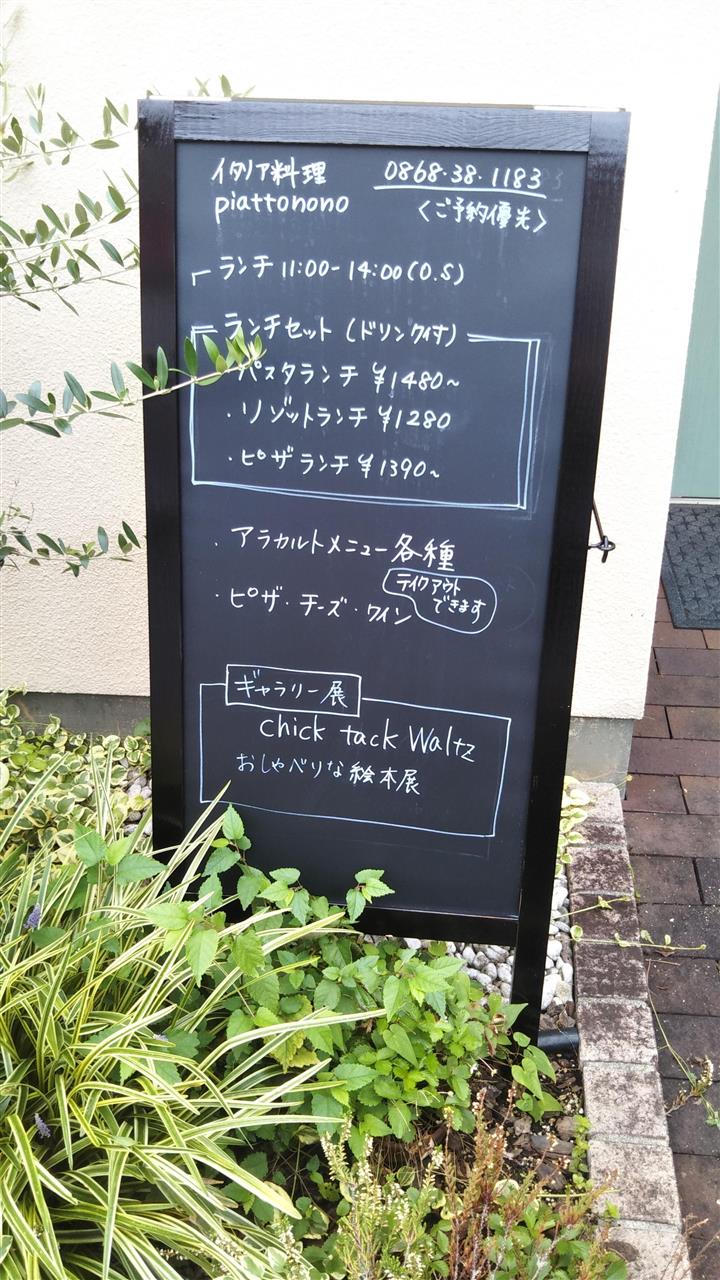 イタリア料理 0868・38・1183
piattonono 〈ご予約優先〉
ランチ 11:00-14:00(O.S)
ランチセット(ドリンク付)
パスタランチ ¥1480~
・リゾットランチ ¥1280
・ピザランチ ¥1390~
・アラカルトメニュー各種
・ピザ・チーズ・ワイン
テイクアウト
できます
ギャラリー展
chick tack Waltz
おしゃべりな絵本展